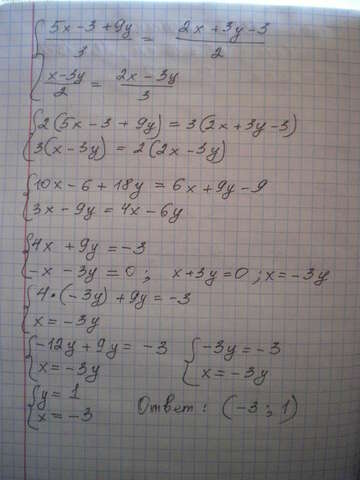 { (5x-3+9y)/3 = (2x+3y-3)/2
{ (x-3y)/2 = (2x-3y)/3
{ 2(5x-3+9y) = 3(2x+3y-3)
{ 3(x-3y) = 2(2x-3y)
{ 10x-6+18y = 6x+9y-9
{ 3x-9y = 4x-6y
{ 4x+9y = -3
{ -x-3y = 0; x+3y = 0; x = -3y
{ 4·(-3y)+9y = -3
{ x = -3y
{ -12y+9y = -3 { -3y = -3
{ x = -3y { x = -3y
{ y = 1
{ x = -3 Ответ: (-3; 1)